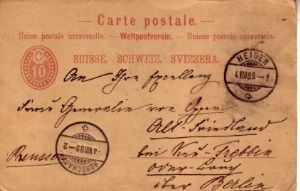 Carte postale.
Union postale universelle. — Weltpostverein. — Unione postale universale.
SUISSE. SCHWEIZ. SVIZZERA.
10
HEIDEN
4 VIII 89 - 1
An Ihre Excellenz
Frau Generalin von
Alt-Friedland
bei Neu-Trebbin
Oder-Bruch
über Berlin
Preussen
RORSCHACH
4 VIII 89 - 2